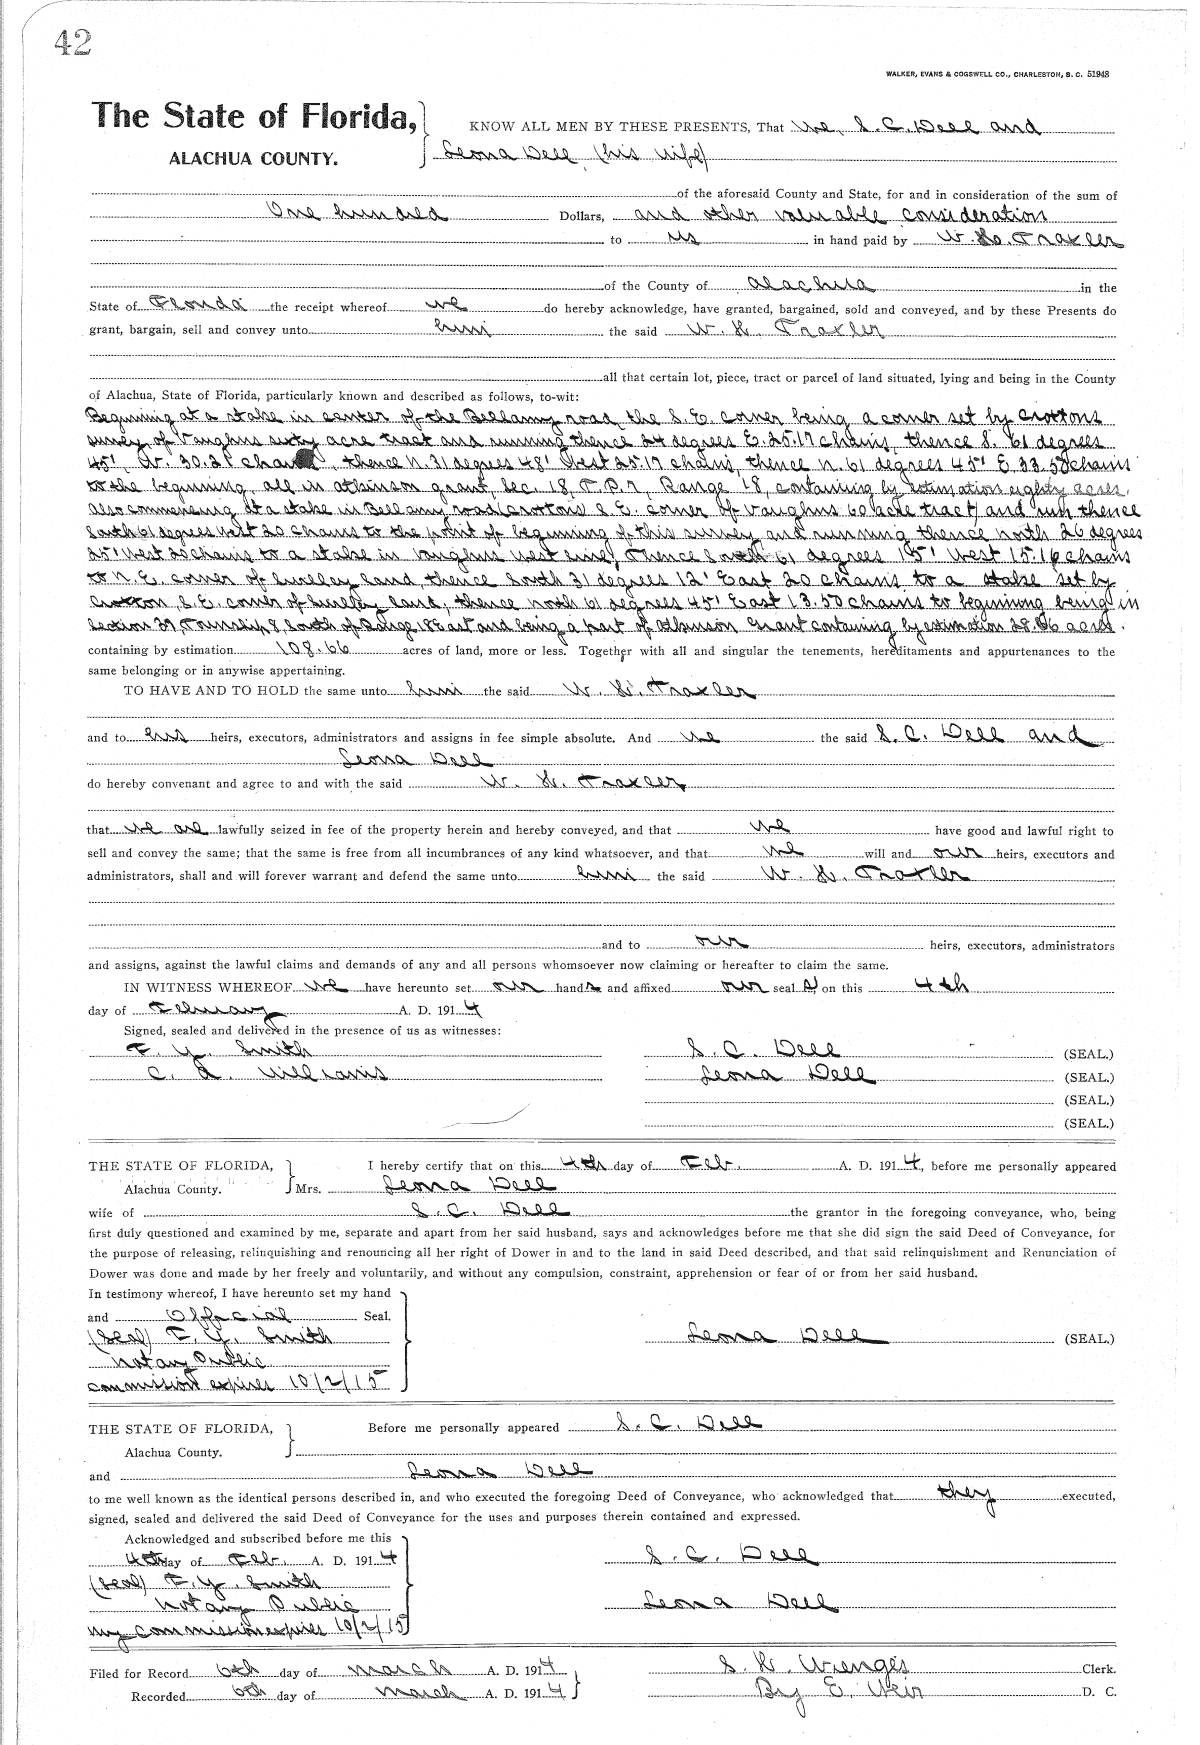 42
WALKER, EVANS & COGSWELL CO., CHARLESTON, S. C. 51948
The State of Florida,
ALACHUA COUNTY.
KNOW ALL MEN BY THESE PRESENTS, That We, S. C. Dell and
Leona Dell (his wife)
of the aforesaid County and State, for and in consideration of the sum of
One hundred Dollars, and other valuable consideration
to us in hand paid by W. H. Traxler
of the County of Alachua in the
State of Florida the receipt whereof we do hereby acknowledge, have granted, bargained, sold and conveyed, and by these Presents do
grant, bargain, sell and convey unto him the said W. H. Traxler
all that certain lot, piece, tract or parcel of land situated, lying and being in the County
of Alachua, State of Florida, particularly known and described as follows, to-wit:
Beginning at a stake in center of the Bellamy road, the S. E. corner being a corner set by Crottons
survey of Vaughns sixty acre tract and running thence 24 degrees E. 25.17 chains, thence S. 61 degrees
45', W. 30.21 chains, thence N. 31 degrees 48' West 25.17 chains, thence N. 61 degrees 45' E. 33.50 chains
to the beginning, all in Atkinson grant, Sec. 18, T. P. 7, Range 18, containing by estimation eighty acres.
Also commencing at a stake in Bellamy road (Crottons S. E. corner of Vaughns 60 acre tract) and run thence
South 61 degrees West 20 chains to the point of beginning of this survey and running thence north 26 degrees
25' West 20 chains to a stake in Vaughns West line, thence South 61 degrees 15' West 15.16 chains
to N. E. corner of land thence South 31 degrees 12' East 20 chains to a stake set by
Crotton, S. E. corner of land, thence north 61 degrees 45' East 13.50 chains to beginning being in
Section 39, Township 8 South of Range 18 East and being a part of Atkinson Grant containing by estimation 28.66 acres.
containing by estimation 108.66 acres of land, more or less. Together with all and singular the tenements, hereditaments and appurtenances to the
same belonging or in anywise appertaining.
TO HAVE AND TO HOLD the same unto him the said W. H. Traxler
and to his heirs, executors, administrators and assigns in fee simple absolute. And we the said S. C. Dell and
Leona Dell
do hereby convenant and agree to and with the said W. H. Traxler
that we are lawfully seized in fee of the property herein and hereby conveyed, and that we have good and lawful right to
sell and convey the same; that the same is free from all incumbrances of any kind whatsoever, and that we will and our heirs, executors and
administrators, shall and will forever warrant and defend the same unto him the said W. H. Traxler
and to our heirs, executors, administrators
and assigns, against the lawful claims and demands of any and all persons whomsoever now claiming or hereafter to claim the same.
IN WITNESS WHEREOF we have hereunto set our hands and affixed our seal s on this 4th
day of February A. D. 1914
Signed, sealed and delivered in the presence of us as witnesses:
F. Y. Smith S. C. Dell (SEAL.)
C. A. Williams Leona Dell (SEAL.)
(SEAL.)
(SEAL.)
THE STATE OF FLORIDA, I hereby certify that on this 4th day of Feb. A. D. 1914, before me personally appeared
Alachua County. Mrs. Leona Dell
wife of S. C. Dell the grantor in the foregoing conveyance, who, being
first duly questioned and examined by me, separate and apart from her said husband, says and acknowledges before me that she did sign the said Deed of Conveyance, for
the purpose of releasing, relinquishing and renouncing all her right of Dower in and to the land in said Deed described, and that said relinquishment and Renunciation of
Dower was done and made by her freely and voluntarily, and without any compulsion, constraint, apprehension or fear of or from her said husband.
In testimony whereof, I have hereunto set my hand
and Official Seal.
(Seal) F. Y. Smith Leona Dell (SEAL.)
Notary Public
commission expires 10/2/15
THE STATE OF FLORIDA, Before me personally appeared S. C. Dell
Alachua County.
and Leona Dell
to me well known as the identical persons described in, and who executed the foregoing Deed of Conveyance, who acknowledged that they executed,
signed, sealed and delivered the said Deed of Conveyance for the uses and purposes therein contained and expressed.
Acknowledged and subscribed before me this
4th day of Feb. A. D. 1914 S. C. Dell
(Seal) F. Y. Smith
Notary Public Leona Dell
my commission expires 10/2/15
Filed for Record 6th day of March A. D. 1914 S. H. Wienges Clerk.
Recorded 6th day of March A. D. 1914 By E. Weir D. C.